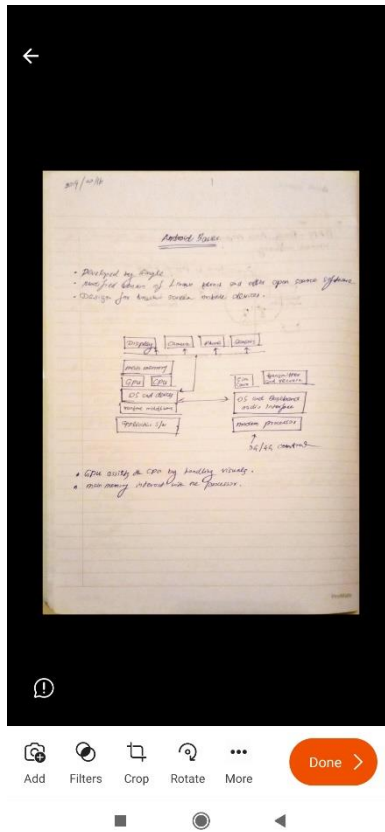 Android Basics
• Developed by Google
- modified version of Linux kernel and other open source software
- Design for touch screen mobile devices.
Display Camera
main memory
GPU CPU
Sim Card transmitter and receiver
OS and
OS and Baseband
radio Interface
modem processor
3G/4G
• GPU assists the CPU by handling visuals.
• main memory interact with the processor.
Add Filters Crop Rotate More Done